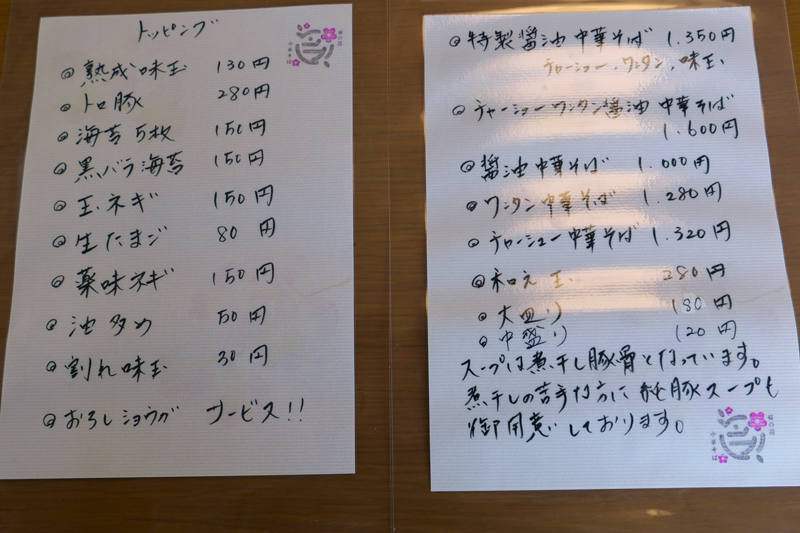 トッピング
◎熟成味玉 130円
◎トロ豚 280円
◎海苔5枚 150円
◎黒バラ海苔 150円
◎玉ネギ 150円
◎生たまご 80円
◎薬味ネギ 150円
◎油多め 50円
◎割れ味玉 30円
◎おろしショウガ サービス!!
◎特製醤油中華そば 1.350円
チャーシュー.ワンタン.味玉
◎チャーシューワンタン醤油中華そば
1.600円
◎醤油中華そば 1.000円
◎ワンタン中華そば 1.280円
◎チャーシュー中華そば 1.320円
◎和え玉 280円
◎大盛り 180円
◎中盛り 120円
スープは煮干し豚骨となっています。
煮干しの苦手な方に純豚スープも
御用意しております。